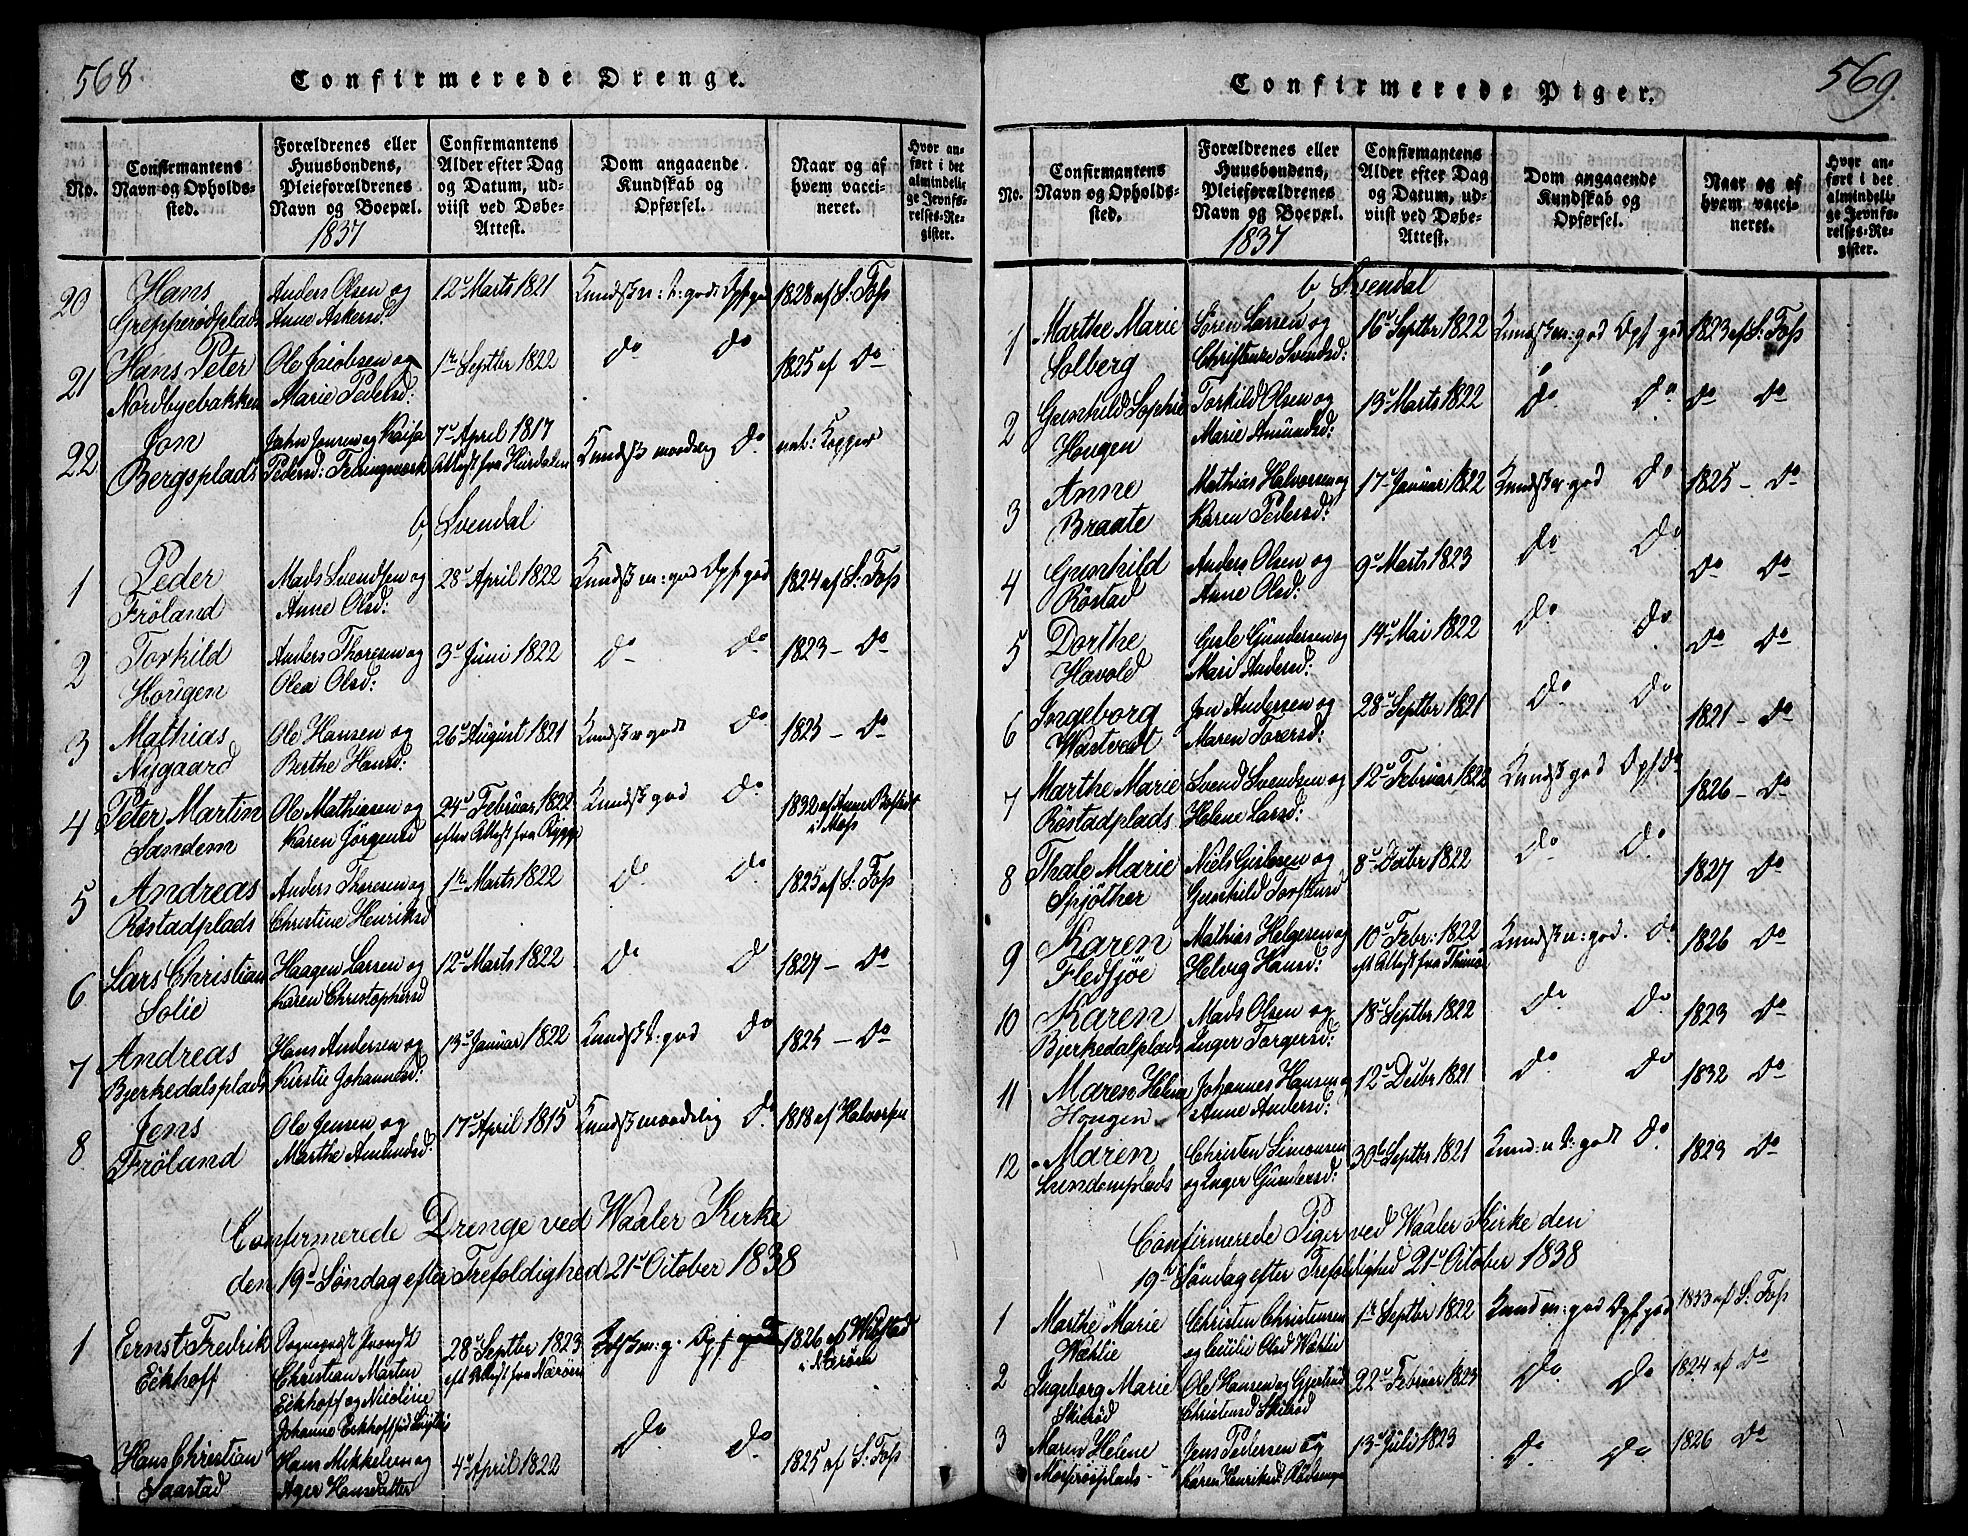 568.
Confirmerede Drenge.
No.
Confirmantens
Navn og Opholds-
sted.
Forældrenes eller
Huusbondens,
Pleieforældrenes
Navn og Boepæl.
1837
Confirmantens
Alder efter Dag
og Datum, ud-
viist ved Døbe-
Attest.
Dom angaaende
Kundskab og
Opførsel.
Naar og af
hvem vacci-
neret.
Hvor an-
ført i det
almindeli-
ge Jevnfø-
relses-Re-
gister.
20 Hans Anders Olsen og 12 Marts 1821 1828 af S: Foss
Grepperødplads Anne Askersd:
21 Hans Peter Ole Jacobsen og 1 Septbr 1822 do do 1825 af do
Nordbyebakken Marie Pedersd:
22 Jon John Jonsen og Kaisa 7 April 1817 Kundsk maadelig do nat: Kopper
Bergsplads Pedersd: Attest fra Hurdalen
b, Svendal
1 Peder Mads Svendsen og 28 April 1822 Kundsk m: god Opf god 1824 af S: Foss
Frøland Anne Olsd:
2 Torkild Anders Thoresen og 3 Juni 1822 do do 1823 – do
Hougen Olea Olsd:
3 Mathias Ole Hansen og 26 August 1821 do 1825 – do
Nygaard Berthe Hansd:
4 Peter Martin Ole Mathiesen og 24 Februar 1822 Kundsk god do 1832 af
Sandem Karen Jørgensd efter Attest fra Rygge i Moss
5 Andreas Anders Thoresen og 1 Marts 1822 do do 1825 af S: Foss
Røstadplads Christine Henriksd
6 Lars Christian Haagen Larsen og 12 Marts 1822 do do 1827 – do
Solie Karen Christophersd
7 Andreas Hans Andersen og 13 Januar 1822 do 1825 – do
Bjerkedalsplads Kirstie Johannesd:
8 Jens Ole Jensen og 17 April 1815 Kundsk maadelig do 1818 af Halvorsen
Frøland Marthe Amundsd:
Confirmerede Drenge ved Waaler Kirke
den 19 Søndag efter Trefoldighed 21 October 1838
1 Ernst Fredrik 28 Septbr 1823 1826 af
Eckhoff Christian Martin eft Attest fra Nærøen
Eckhoff og Nicoline
Johanne Eckhoff
Hans Christian Hans Mikkelsen og 4 April 1822 do do 1825 af S: Foss
Saastad Ager Hansdatter
569.
Confirmerede Piger.
No.
Confirmantens
Navn og Opholds-
sted.
Forældrenes eller
Huusbondens,
Pleieforældrenes
Navn og Boepæl.
1837
Confirmantens
Alder efter Dag
og Datum, ud-
viist ved Døbe-
Attest.
Dom angaaende
Kundskab og
Opførsel.
Naar og af
hvem vacci-
neret.
Hvor an-
ført i det
almindeli-
ge Jevnfø-
relses-Re-
gister.
b Svendal
1 Marthe Marie Søren Larsen og 16 Septbr 1822 Kundsk m: god Opf god 1823 af S: Foss
Solberg Christense Svendsd:
2 Gunhild Sophie Torkild Olsen og 13 Marts 1822 do do do do
Hougen Marie Amundsd:
3 Anne Mathias Halvorsen og 17 Januar 1822 do 1825 – do
Braate Karen Pedersd:
4 Gunhild Anders Olsen og 9 Marts 1823 do do do do
Røstad Anne Olsd:
5 Dorthe Gisle Gundersen og 14 Mai 1822 do do do do
Havold Mari Andersd:
6 Ingeborg Jon Andersen og 28 Septbr 1821 do do 1821 – do
Wastvedt Maren Toresd:
7 Marthe Marie Svend Svendsen og 12 Februar 1822 Kundsk god Opf do 1826 – do
Røstadplads Helene Larsd:
8 Thale Marie Niels Gislesen og 8 Decbr 1822 do do 1827 do
Spjøther Gunhild
9 Karen Mathias Helgesen og 10 Febr: 1822 Kundsk m: god. do 1826 do
Fledsjøe Helvig Hansd: eft Attest fra
10 Karen Mads Olsen og 18 Septbr 1822 do do 1823 do
Bjerkedalplads Inger Torgersd:
11 Maren Helene Johannes Hansen og 12 Decbr 1821 do do 1832 do
Hougen Anne Andersd:
12 Maren Christen Simonsen 30 Septbr 1821 do 1823 do
Lundemplads og Inger Gundersd:
Confirmerede Piger ved Waaler Kirke den
19 Søndag efter Trefoldighed 21 October 1838
1 Marthe Marie Christen Christensen 1 Septbr 1822 Kund m: god Opf god 1833 af S: Foss
Wæhlie og Cecilie Olsd Wæhlie
2 Ingeborg Marie Ole Hansen og Gjertrud 22 Februar 1823 do do 1824 af do
Skibrød Christensd Skibrød
3 Maren Helene Jens Pedersen og 13 Juli 1823 do do 1826 do
Karen Henriksd: